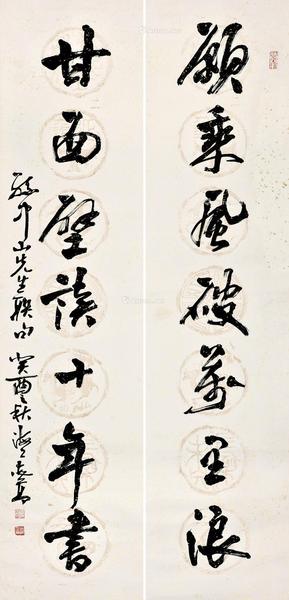 願乘風破萬里浪
甘面壁讀十年書
孫中山先生聯句 癸酉之秋